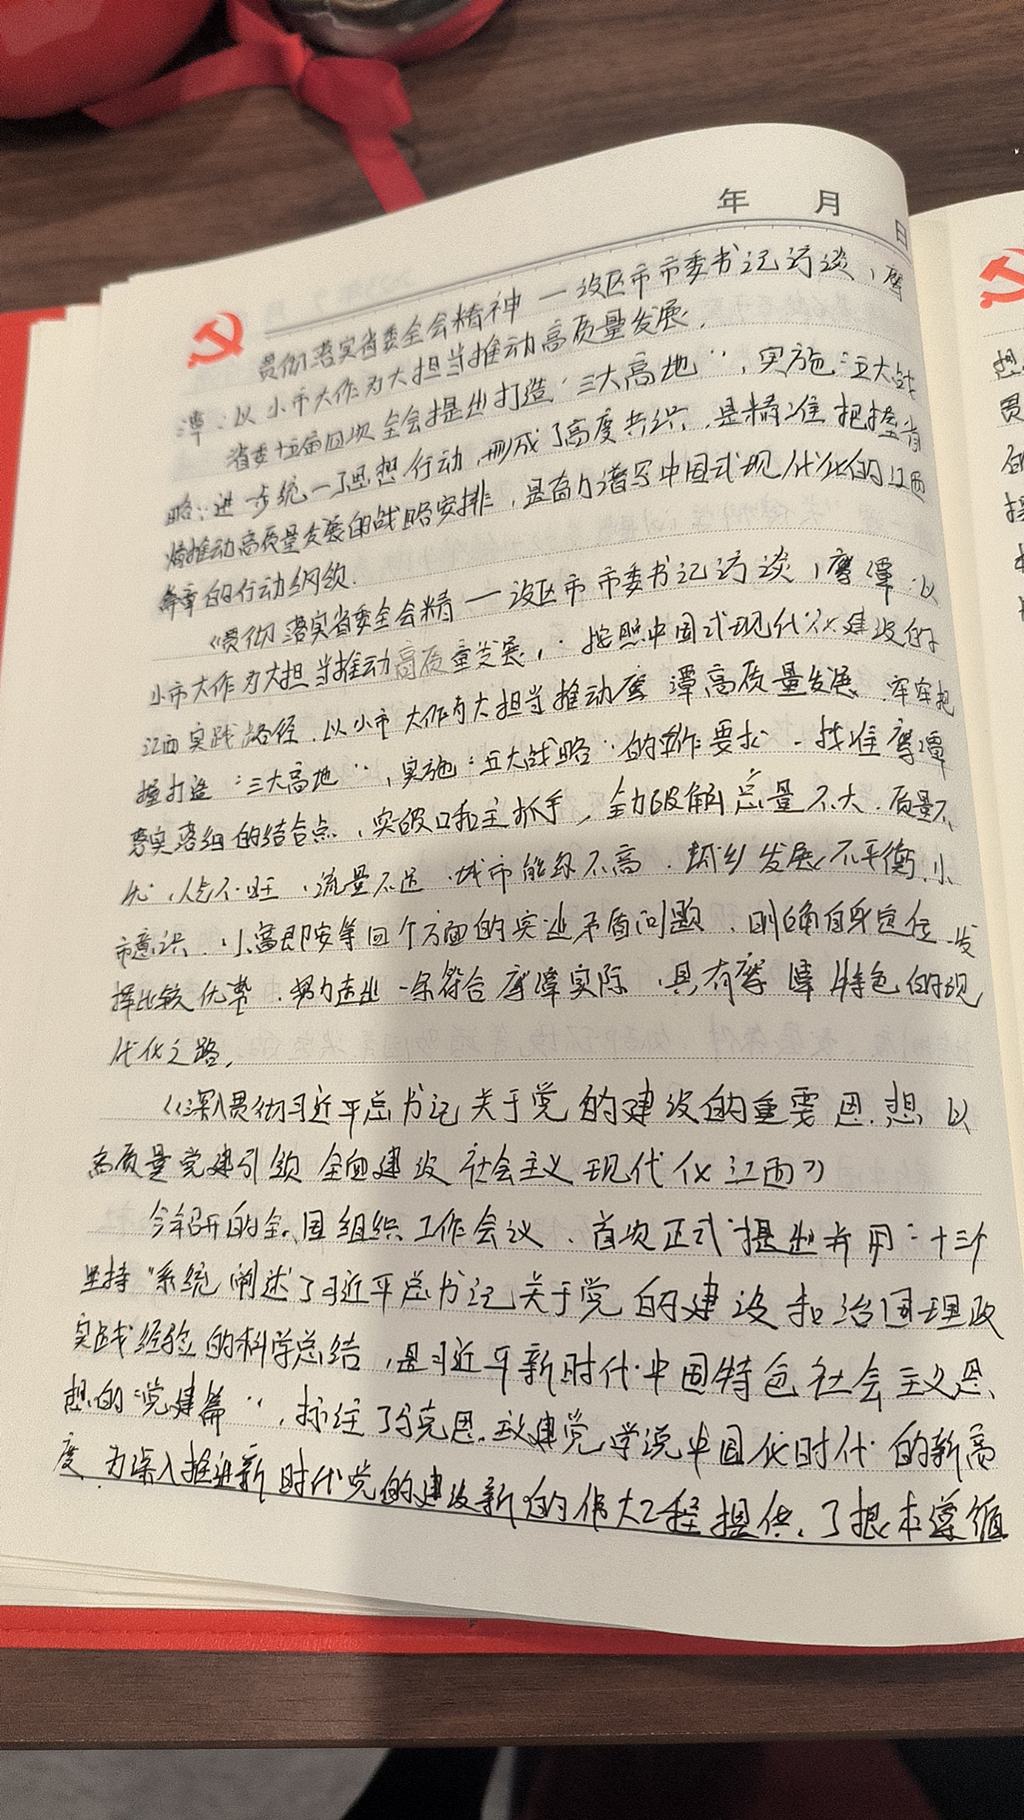 年 月 日
贯彻落实省委全会精神 — 设区市市委书记访谈、鹰
潭：以小市大作为大担当推动高质量发展.
省委十五届四次全会提出打造“三大高地”，实施“五大战
略，进一步统一了思想行动，形成了高度共识，是精准把握省
情推动高质量发展的战略安排，是奋力谱写中国式现代化的江西
篇章的行动纲领.
《贯彻落实省委全会精 — 设区市市委书记访谈、鹰潭：以
小市大作为大担当推动高质量发展，按照中国式现代化建设的
江西实践路径，以小市大作为大担当推动鹰潭高质量发展，牢牢把
握打造“三大高地”，实施“五大战略”的工作要求，找准鹰潭
落实落细的结合点、突破口和主抓手，全力破解总量不大、质量不
优、人气不旺、流量不足、城市能级不高、城乡发展不平衡、小
市意识、小富即安等四个方面的突出矛盾问题，明确自身定位，发
挥比较优势，努力走出一条符合鹰潭实际、具有鹰潭特色的现
代化之路.
《深入贯彻习近平总书记关于党的建设的重要思想 以
高质量党建引领全面建设社会主义现代化江西》
今年召开的全国组织工作会议，首次正式提出并用“十三个
坚持”系统阐述了习近平总书记关于党的建设和治国理政
实践经验的科学总结，是习近平新时代中国特色社会主义思
想的“党建篇”，标注了马克思主义建党学说中国化时代的新高
度，为深入推进新时代党的建设新的伟大工程提供了根本遵循